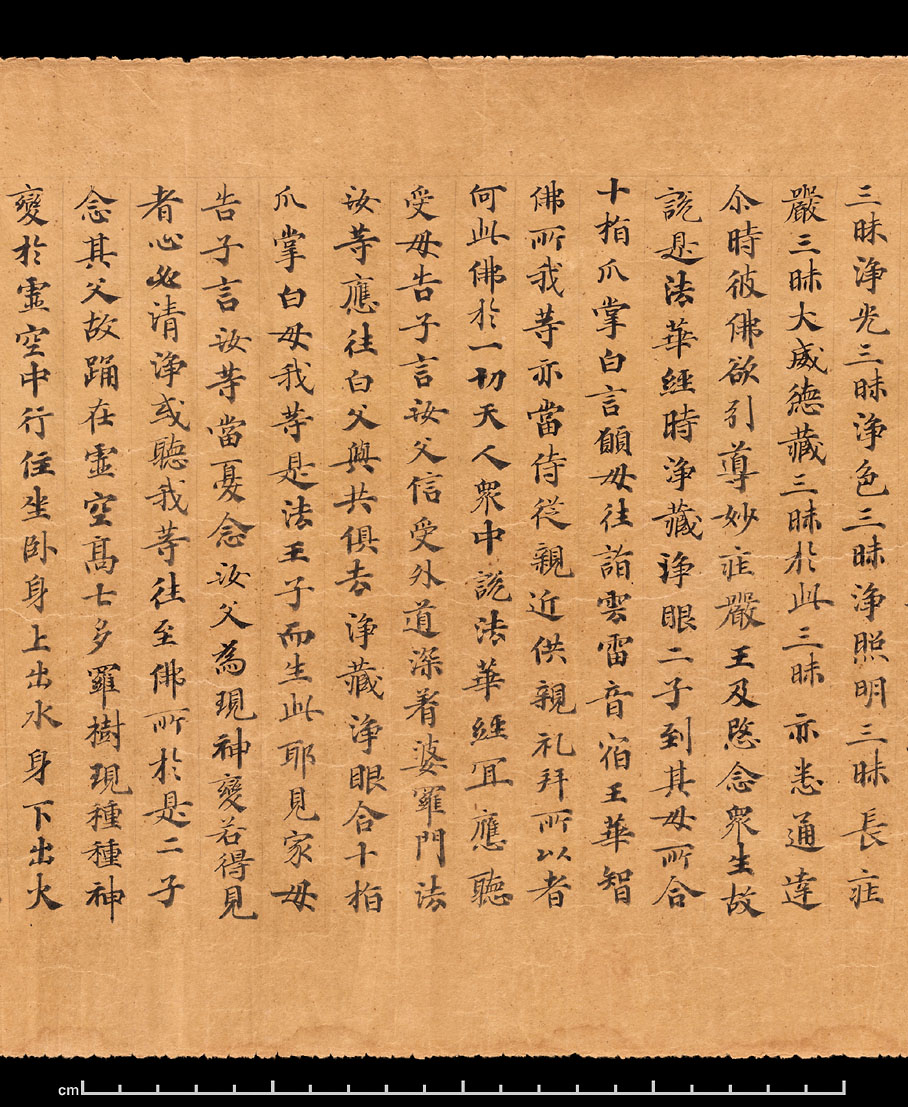 三昧浄光三昧浄色三昧浄照明三昧長庄
嚴三昧大威德藏三昧於此三昧亦悉通達
尒時彼佛欲引導妙庄嚴王及愍念衆生故
說是法華經時浄藏浄眼二子到其母所合
十指爪掌白言願母往詣雲雷音宿王華智
佛所我等亦當侍從親近供親礼拜所以者
何此佛於一切天人衆中說法華經冝應聽
受母告子言汝父信受外道深着婆羅門法
汝等應往白父與共俱去浄藏浄眼合十指
爪掌白母我等是法王子而生此耶見家母
告子言汝等當憂念汝父為現神變若得見
者心必清浄或聽我等往至佛所於是二子
念其父故踊在虛空高七多羅樹現種種神
變於虛空中行住坐卧身上出水身下出火
cm